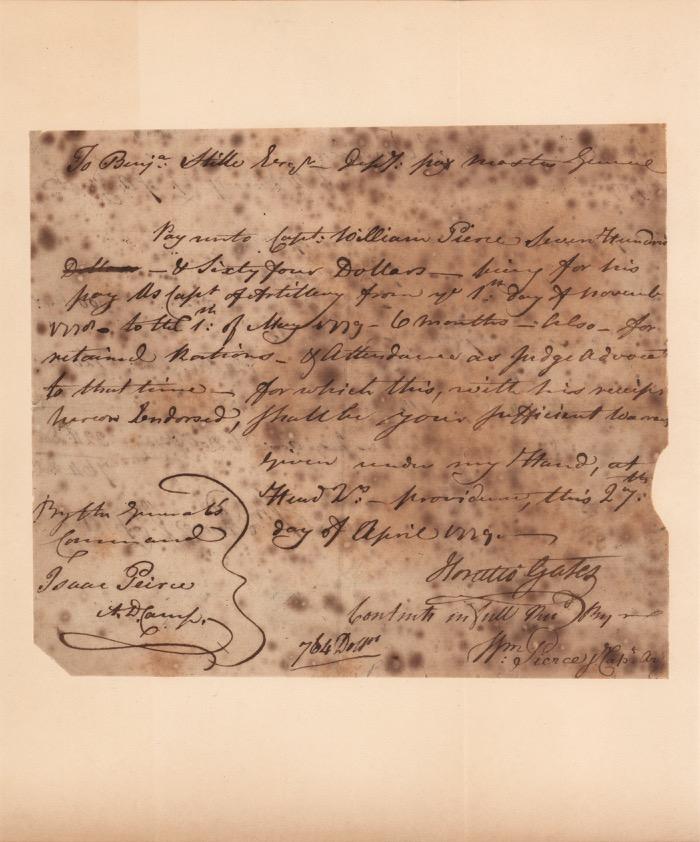 To Benjᵃ: Stille Esqʳ — Depʸ: pay master General
Pay unto Capt: William Pierce Seven Hundred
Dollars — & Sixty four Dollars — being for his
pay As Capt of Artillery from yᵉ 1ˢᵗ day of novemb
1778 — to the 1ˢᵗ: of May 1779 — 6 months — Also — for
retained Rations — & Attendance as Judge Advocat
to that time — for which this, with his receipt
hereon Endorsed, shall be your sufficient Warran
Given under my Hand, at
Head Qʳˢ — providence, this 27ᵗʰ:
day of April 1779 —
By the Generals
Command
Isaac Peirce
A. D. Camp.
Horatio Gates
Contents in full Recᵈ By me
764 Dollars
Wm: Pierce Capt Ar